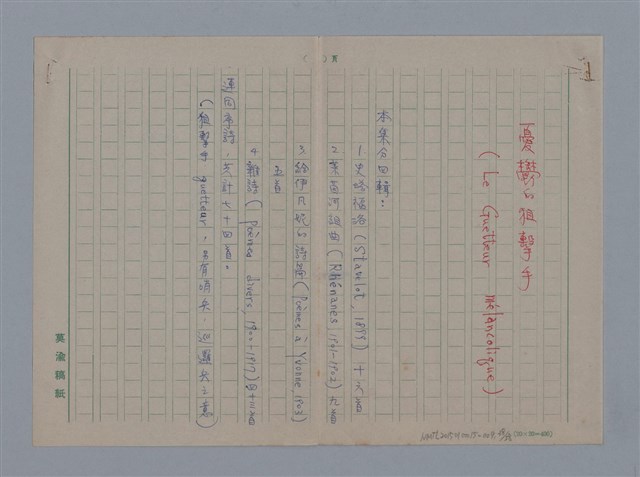 憂鬱的狙擊手
(Le Guetteur mélancolique)
本集分四輯：
1. 史塔福洛（Stavelot, 1899）十六首
2. 萊茵河組曲（Rhénanes 1901-1902）九首
3. 給伊凡妮的
（Poèmes à Yvonne, 1903）
五首
4. 雜詩（Poèmes divers, 1900-1917）四十三首
連同序詩，共計七十四首。
（狙擊手 guetteur，另有哨兵、巡邏兵之意）
莫渝稿紙